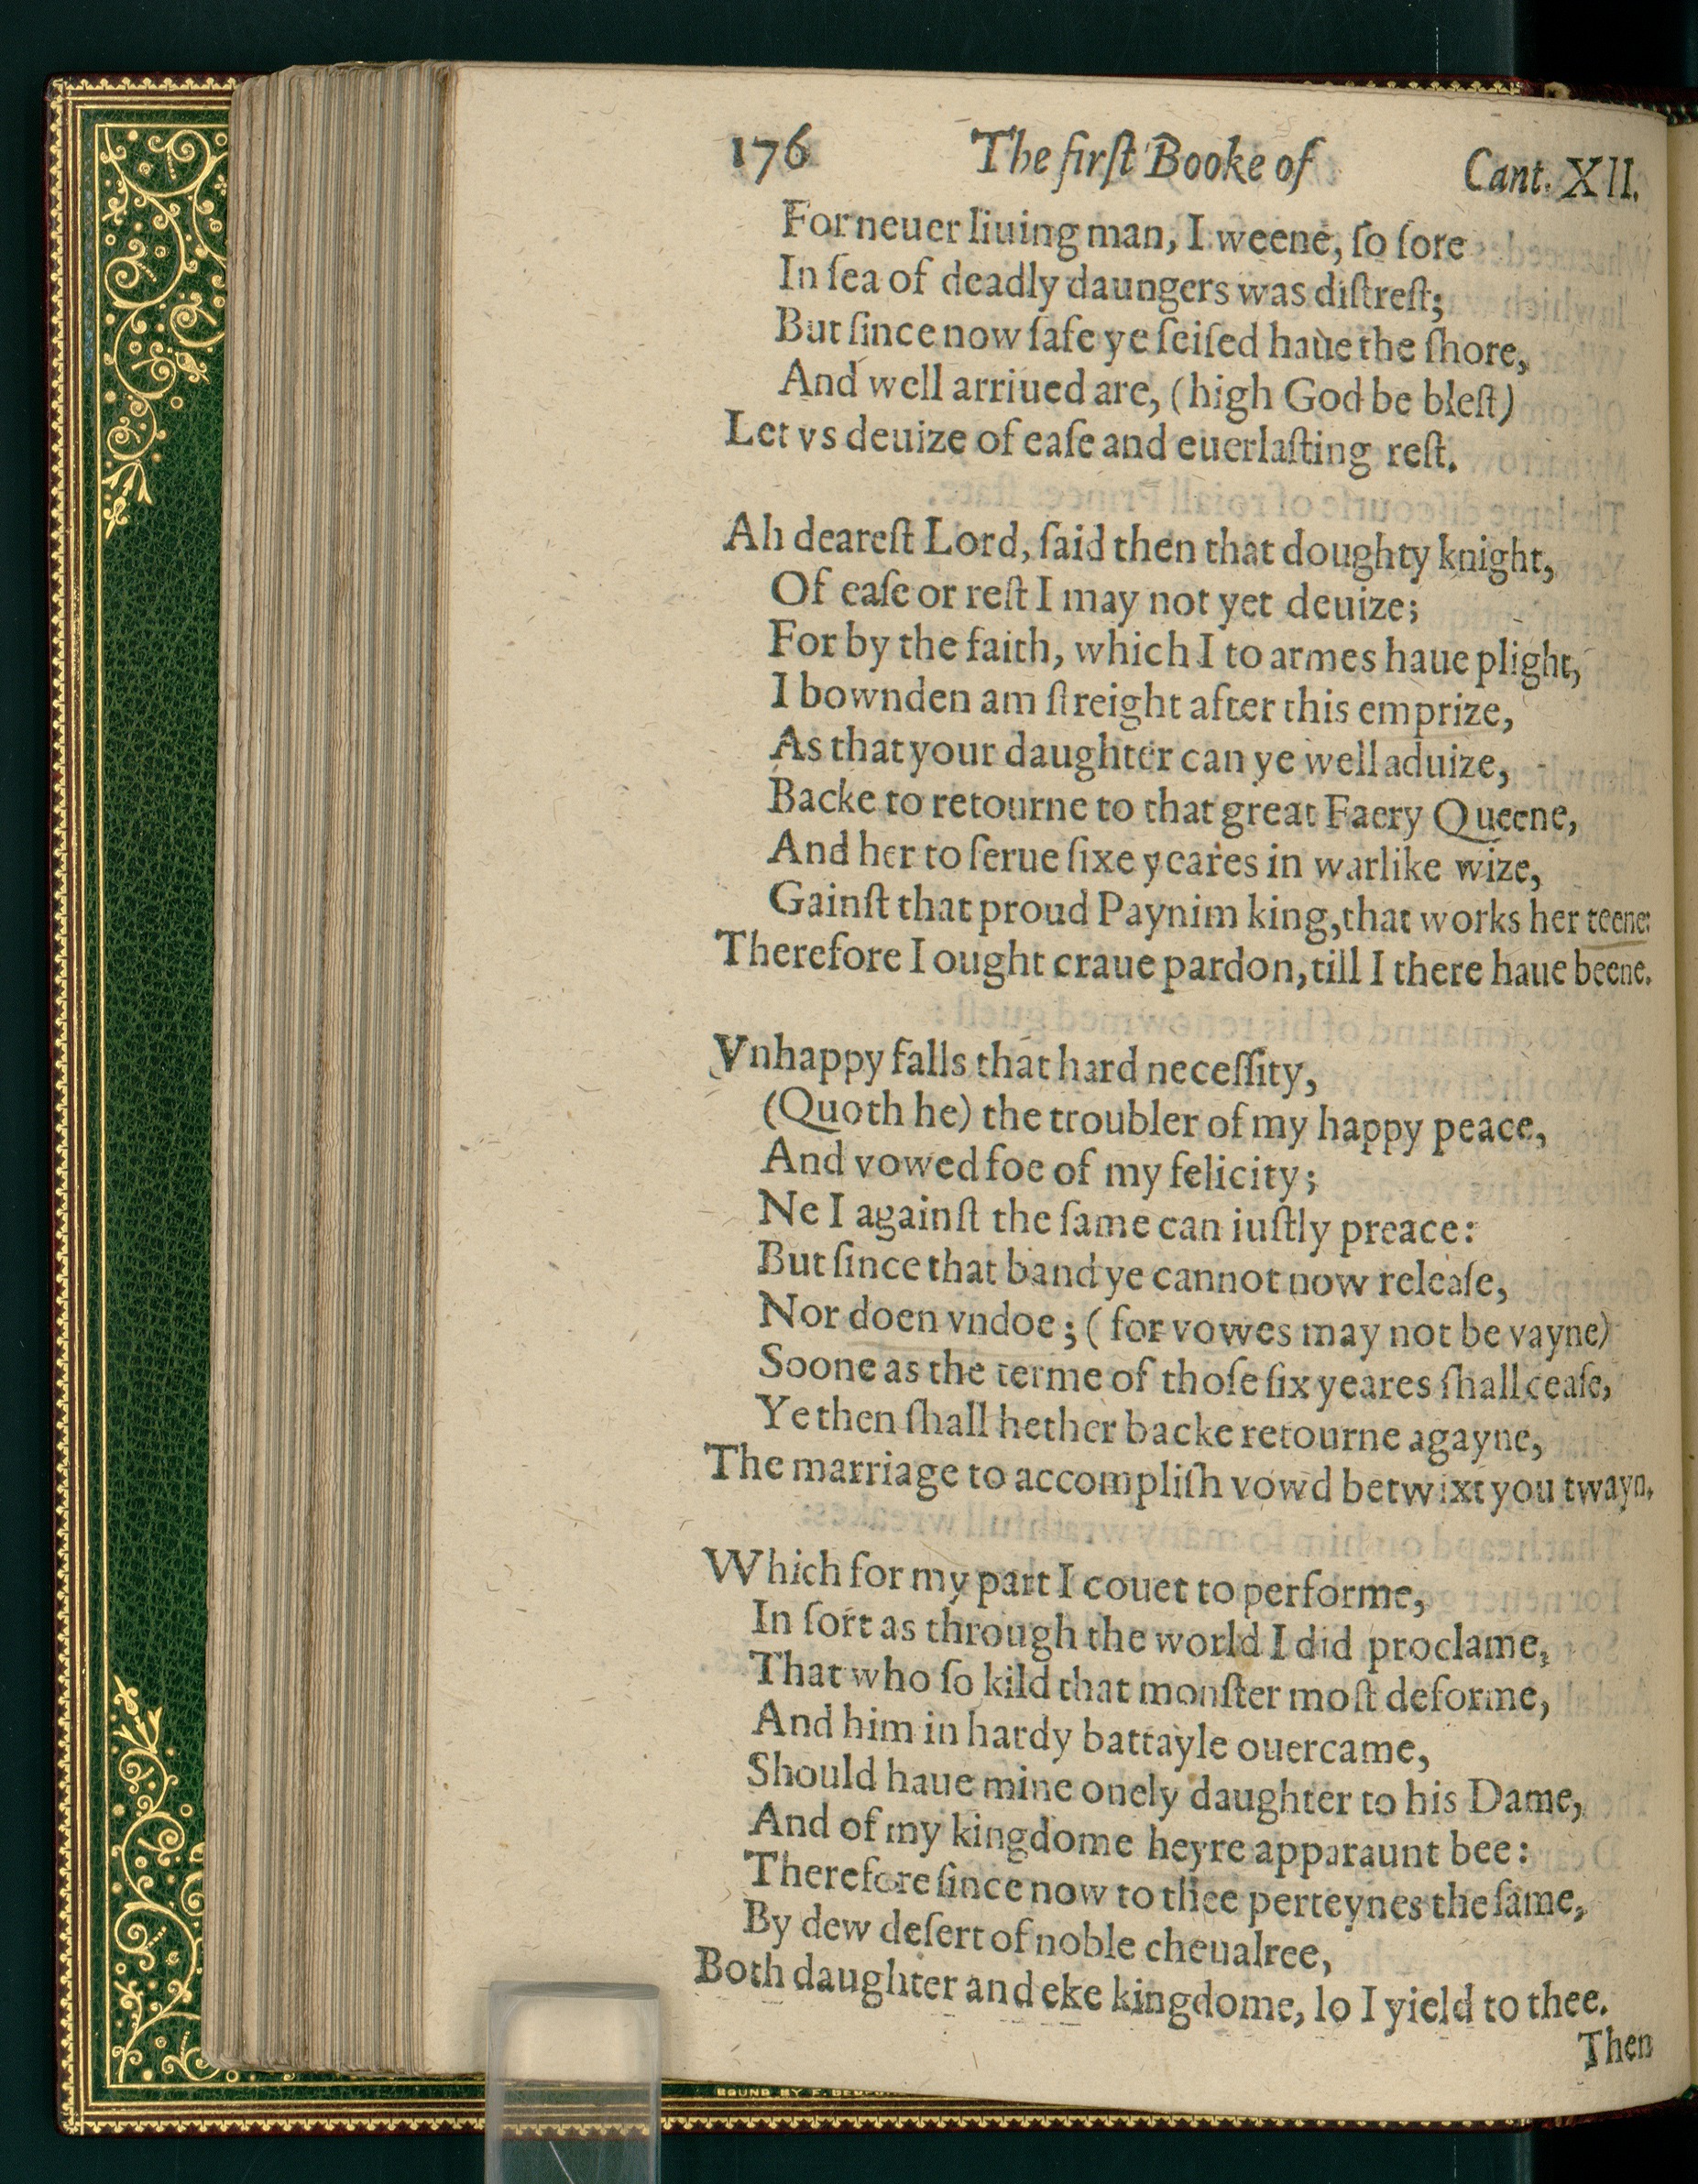 176 The firſt Booke of Cant. XII.
For neuer liuing man, I weene, ſo ſore
In ſea of deadly daungers was diſtreſt;
But ſince now ſafe ye ſeiſed haue the ſhore,
And well arriued are, (high God be bleſt)
Let vs deuize of eaſe and euerlaſting reſt.
Ah deareſt Lord, ſaid then that doughty knight,
Of eaſe or reſt I may not yet deuize;
For by the faith, which I to armes haue plight,
I bownden am ſtreight after this emprize,
As that your daughter can ye well aduize,
Backe to retourne to that great Faery Queene,
And her to ſerue ſixe yeares in warlike wize,
Gainſt that proud Paynim king, that works her teene:
Therefore I ought craue pardon, till I there haue beene.
Vnhappy falls that hard neceſſity,
(Quoth he) the troubler of my happy peace,
And vowed foe of my felicity;
Ne I againſt the ſame can iuſtly preace:
But ſince that band ye cannot now releaſe,
Nor doen vndoe; (for vowes may not be vayne)
Soone as the terme of thoſe ſix yeares ſhall ceaſe,
Ye then ſhall hether backe retourne agayne,
The marriage to accompliſh vowd betwixt you twayn.
Which for my part I couet to performe,
In ſort as through the world I did proclame,
That who ſo kild that monſter moſt deforme,
And him in hardy battayle ouercame,
Should haue mine onely daughter to his Dame,
And of my kingdome heyre apparaunt bee:
Therefore ſince now to thee perteynes the ſame,
By dew deſert of noble cheualree,
Both daughter and eke kingdome, lo I yield to thee.
Then
BOUND BY F.